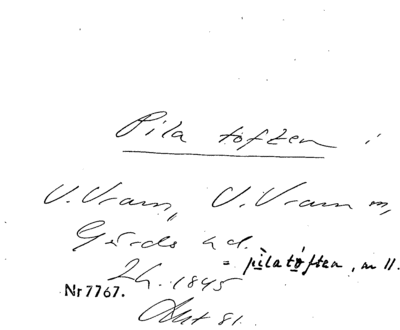 Pila toften i
V. Vram, V. Vram m,
Gärds hd.
= pilatöften, m ll.
Lh. 1845
Nr 7767.
Akt 81.